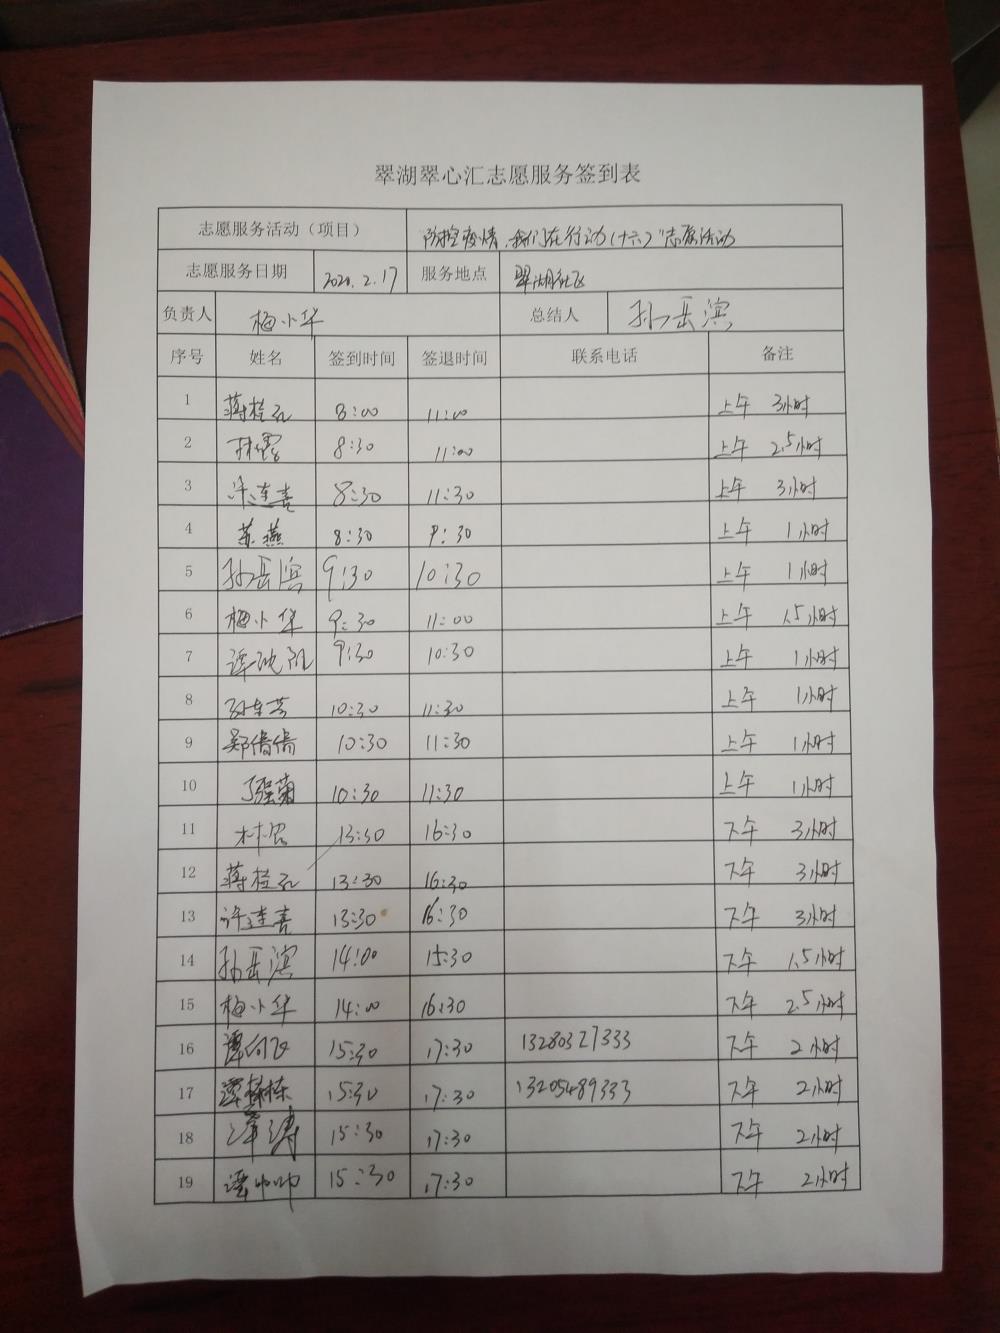 翠湖翠心汇志愿服务签到表
志愿服务活动（项目） 防控疫情,我们在行动(十六)"志愿活动
志愿服务日期 2020.2.17 服务地点 翠湖社区
负责人 梅小华 总结人 孙岳滨
序号 姓名 签到时间 签退时间 联系电话 备注
1 蒋桂孔 8:00 11:00 上午 3小时
2 林露 8:30 11:00 上午 2.5小时
3 许连喜 8:30 11:30 上午 3小时
4 苏燕 8:30 9:30 上午 1小时
5 孙岳滨 9:30 10:30 上午 1小时
6 梅小华 9:30 11:00 上午 1.5小时
7 9:30 10:30 上午 1小时
8 10:30 11:30 上午 1小时
9 郑倩倩 10:30 11:30 上午 1小时
10 10:30 11:30 上午 1小时
11 13:30 16:30 下午 3小时
12 蒋桂孔 13:30 16:30 下午 3小时
13 许连喜 13:30 16:30 下午 3小时
14 孙岳滨 14:00 15:30 下午 1.5小时
15 梅小华 14:00 16:30 下午 2.5小时
16 15:30 17:30 13280327333 下午 2小时
17 15:30 17:30 13205489333 下午 2小时
18 谭涛 15:30 17:30 下午 2小时
19 谭帅帅 15:30 17:30 下午 2小时